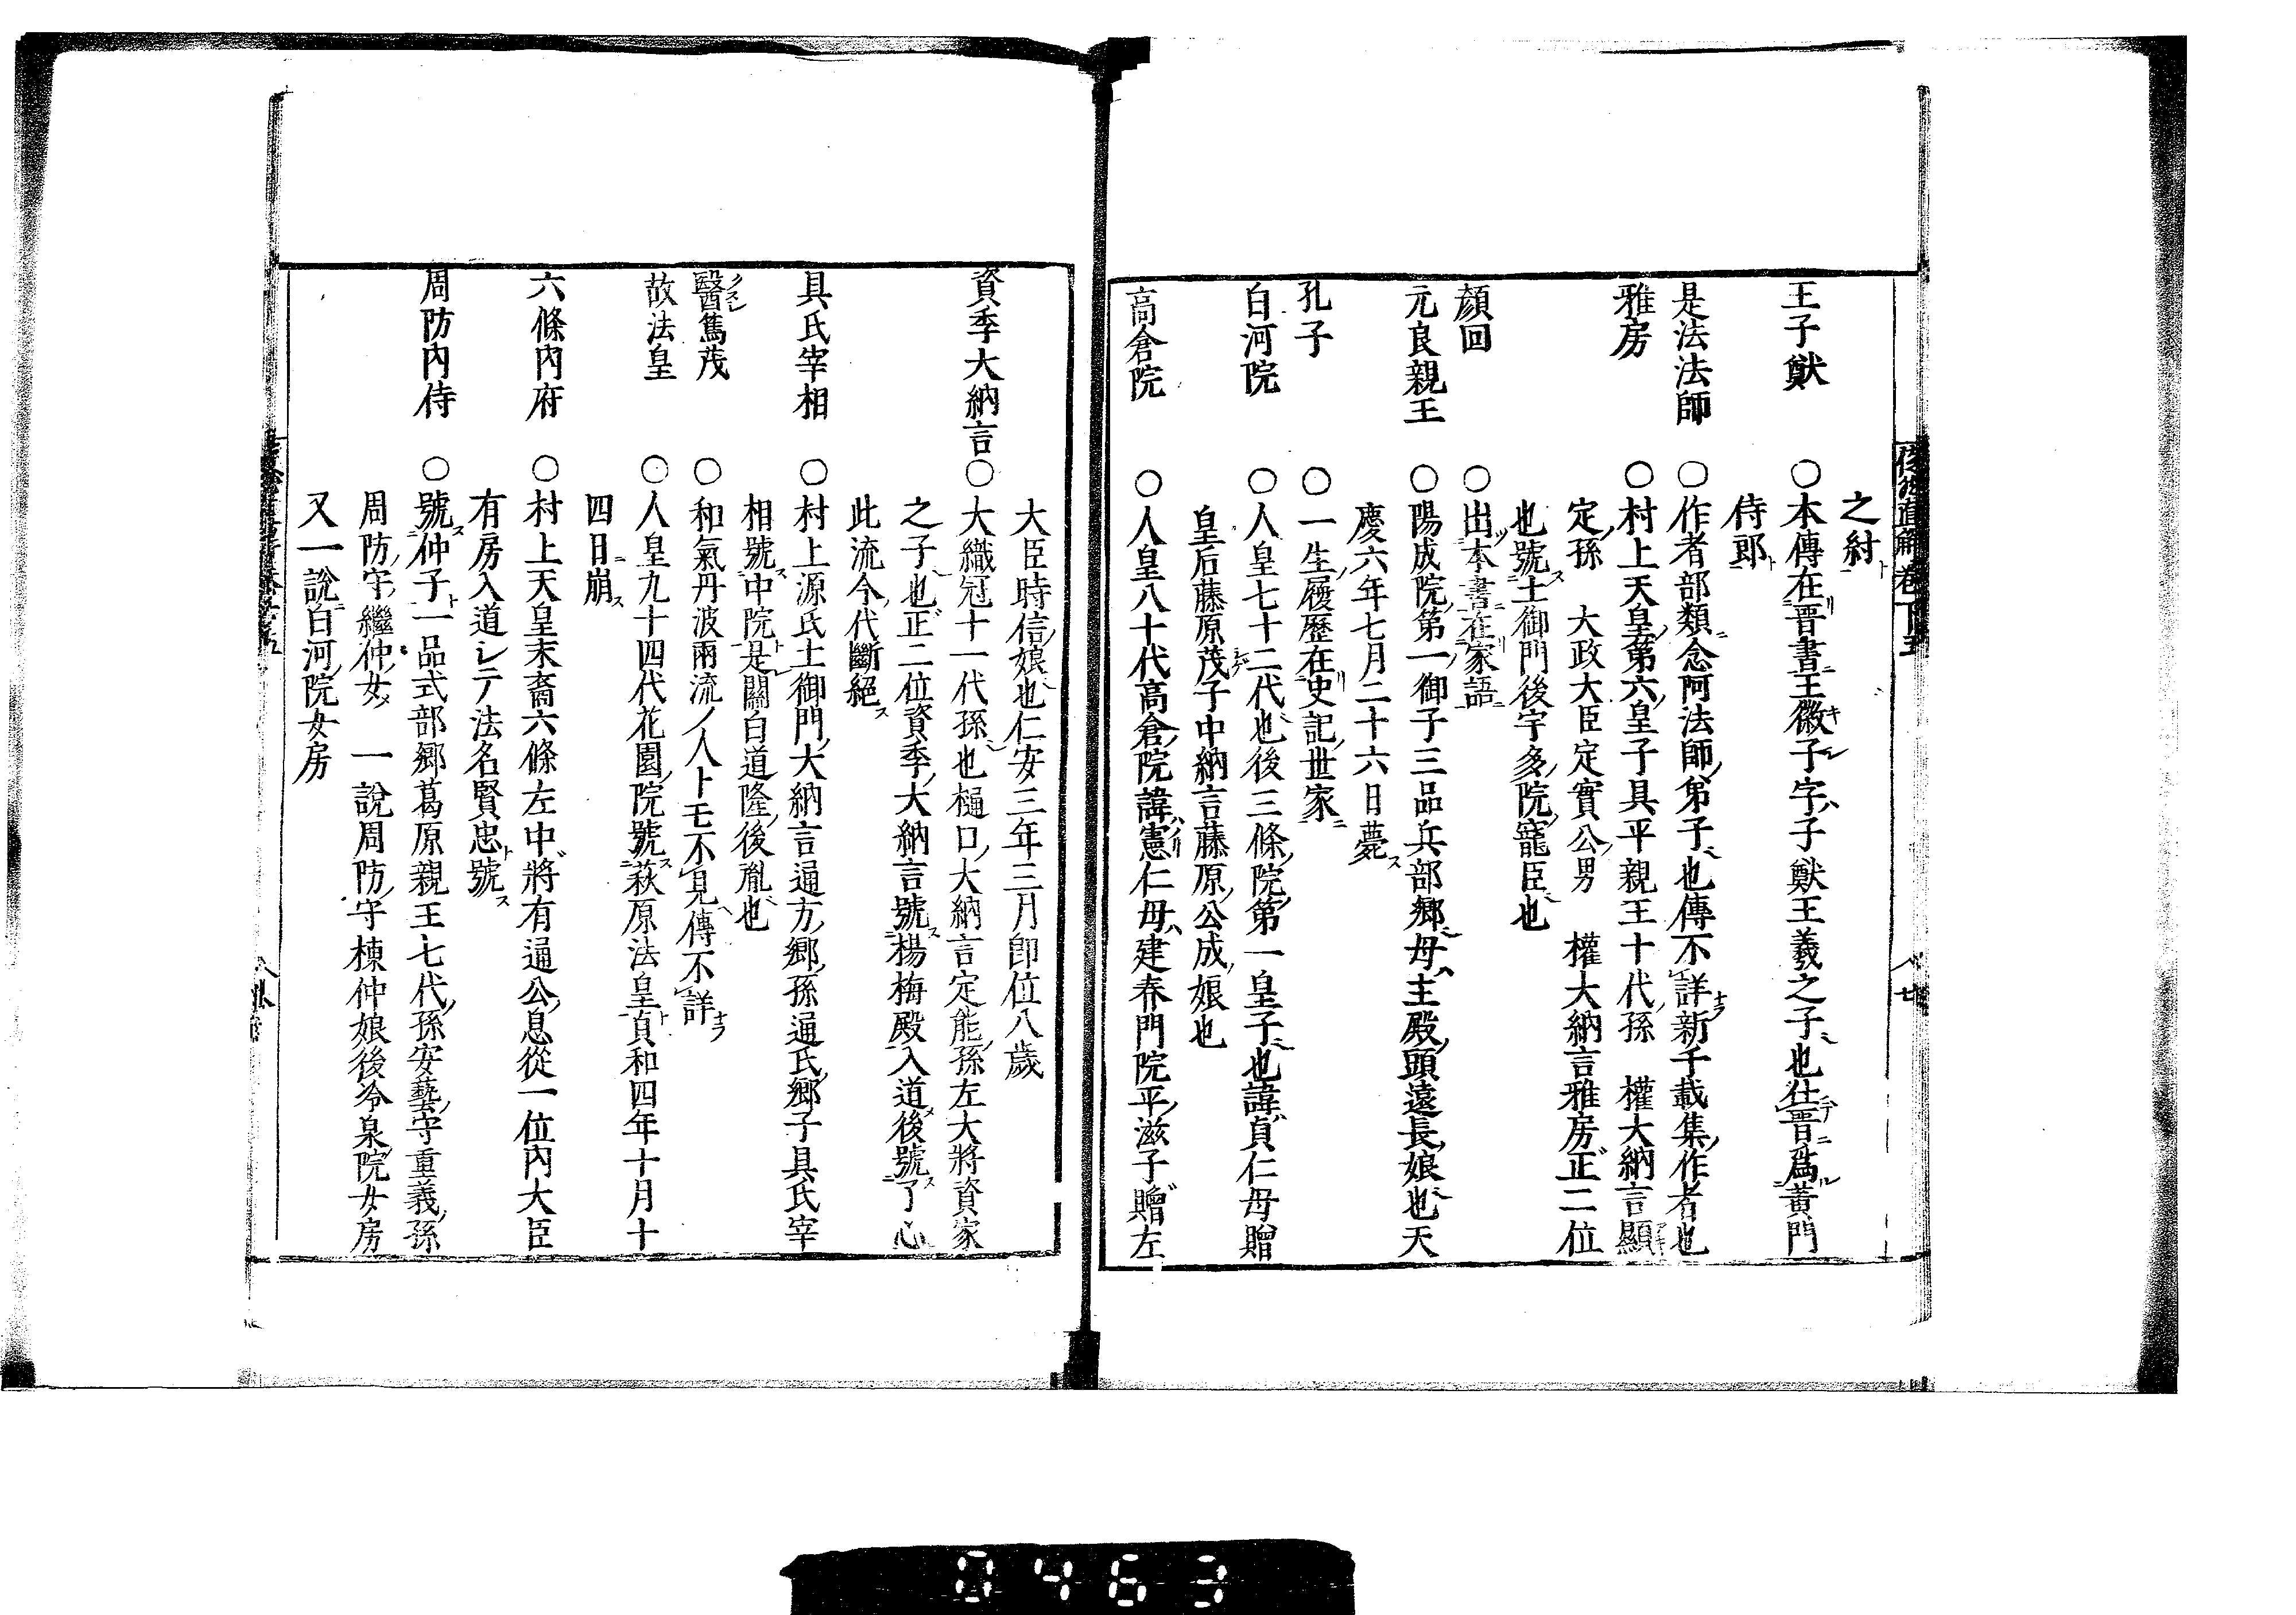 之紂ト
王子猷 ○本傳在晋書王徽子字子猷王義之子也仕晋爲黃門
侍郎ト
是法法師 ○作者部類念阿法師弟子也傳不詳新千載集作者也
雅房 ○村上天皇第六皇子具平親王十代孫 權大納言顯
定孫 大政大臣定實公男 權大納言雅房正二位
也號土御門後宇多院寵臣也
顔回 ○出本書在家語
元良親王 ○陽成院第一御子三品兵部鄉母主殿頭遠長娘也天
慶六年七月二十六日薨ス
孔子 ○一生履歷在史記世家
白河院 ○人皇七十二代也後三條院第一皇子也諱貞仁母贈
皇后藤原茂子中納言藤原公成娘也
高倉院 ○人皇八十代高倉院諱憲仁母建春門院平滋子贈左
大臣時信娘也仁安三年三月即位八歲
資季大納言 ○大織冠十一代孫也樋口大納言定能孫左大將資家
之子也正二位資季大納言號楊梅殿入道後號了心
此流今代斷絕ス
具氏宰相 ○村上源氏土御門大納言通方鄉孫通氏鄉子具氏宰
相號中院是關白道隆後胤也
醫篤茂 ○和氣丹波兩流ノ人トモ不見傳不詳
故法皇 ○人皇九十四代花園院號萩原法皇貞和四年十月十
四日崩ス
六條內府 ○村上天皇末裔六條左中將有通公息從一位內大臣
有房入道シテ法名賢忠號ス
周防內侍 ○號仲子一品式部鄉葛原親王七代孫安藝守重義孫
周防守繼仲女 一說周防守棟仲娘後冷泉院女房
又一說白河院女房
0463